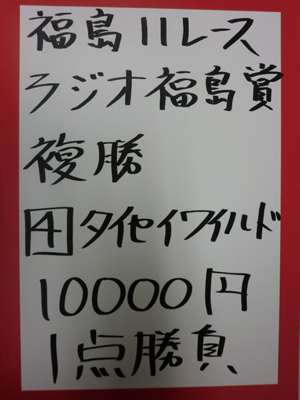 福島11レース
ラジオ福島賞
複勝
4タイセイワイルド
10000円
1点勝負